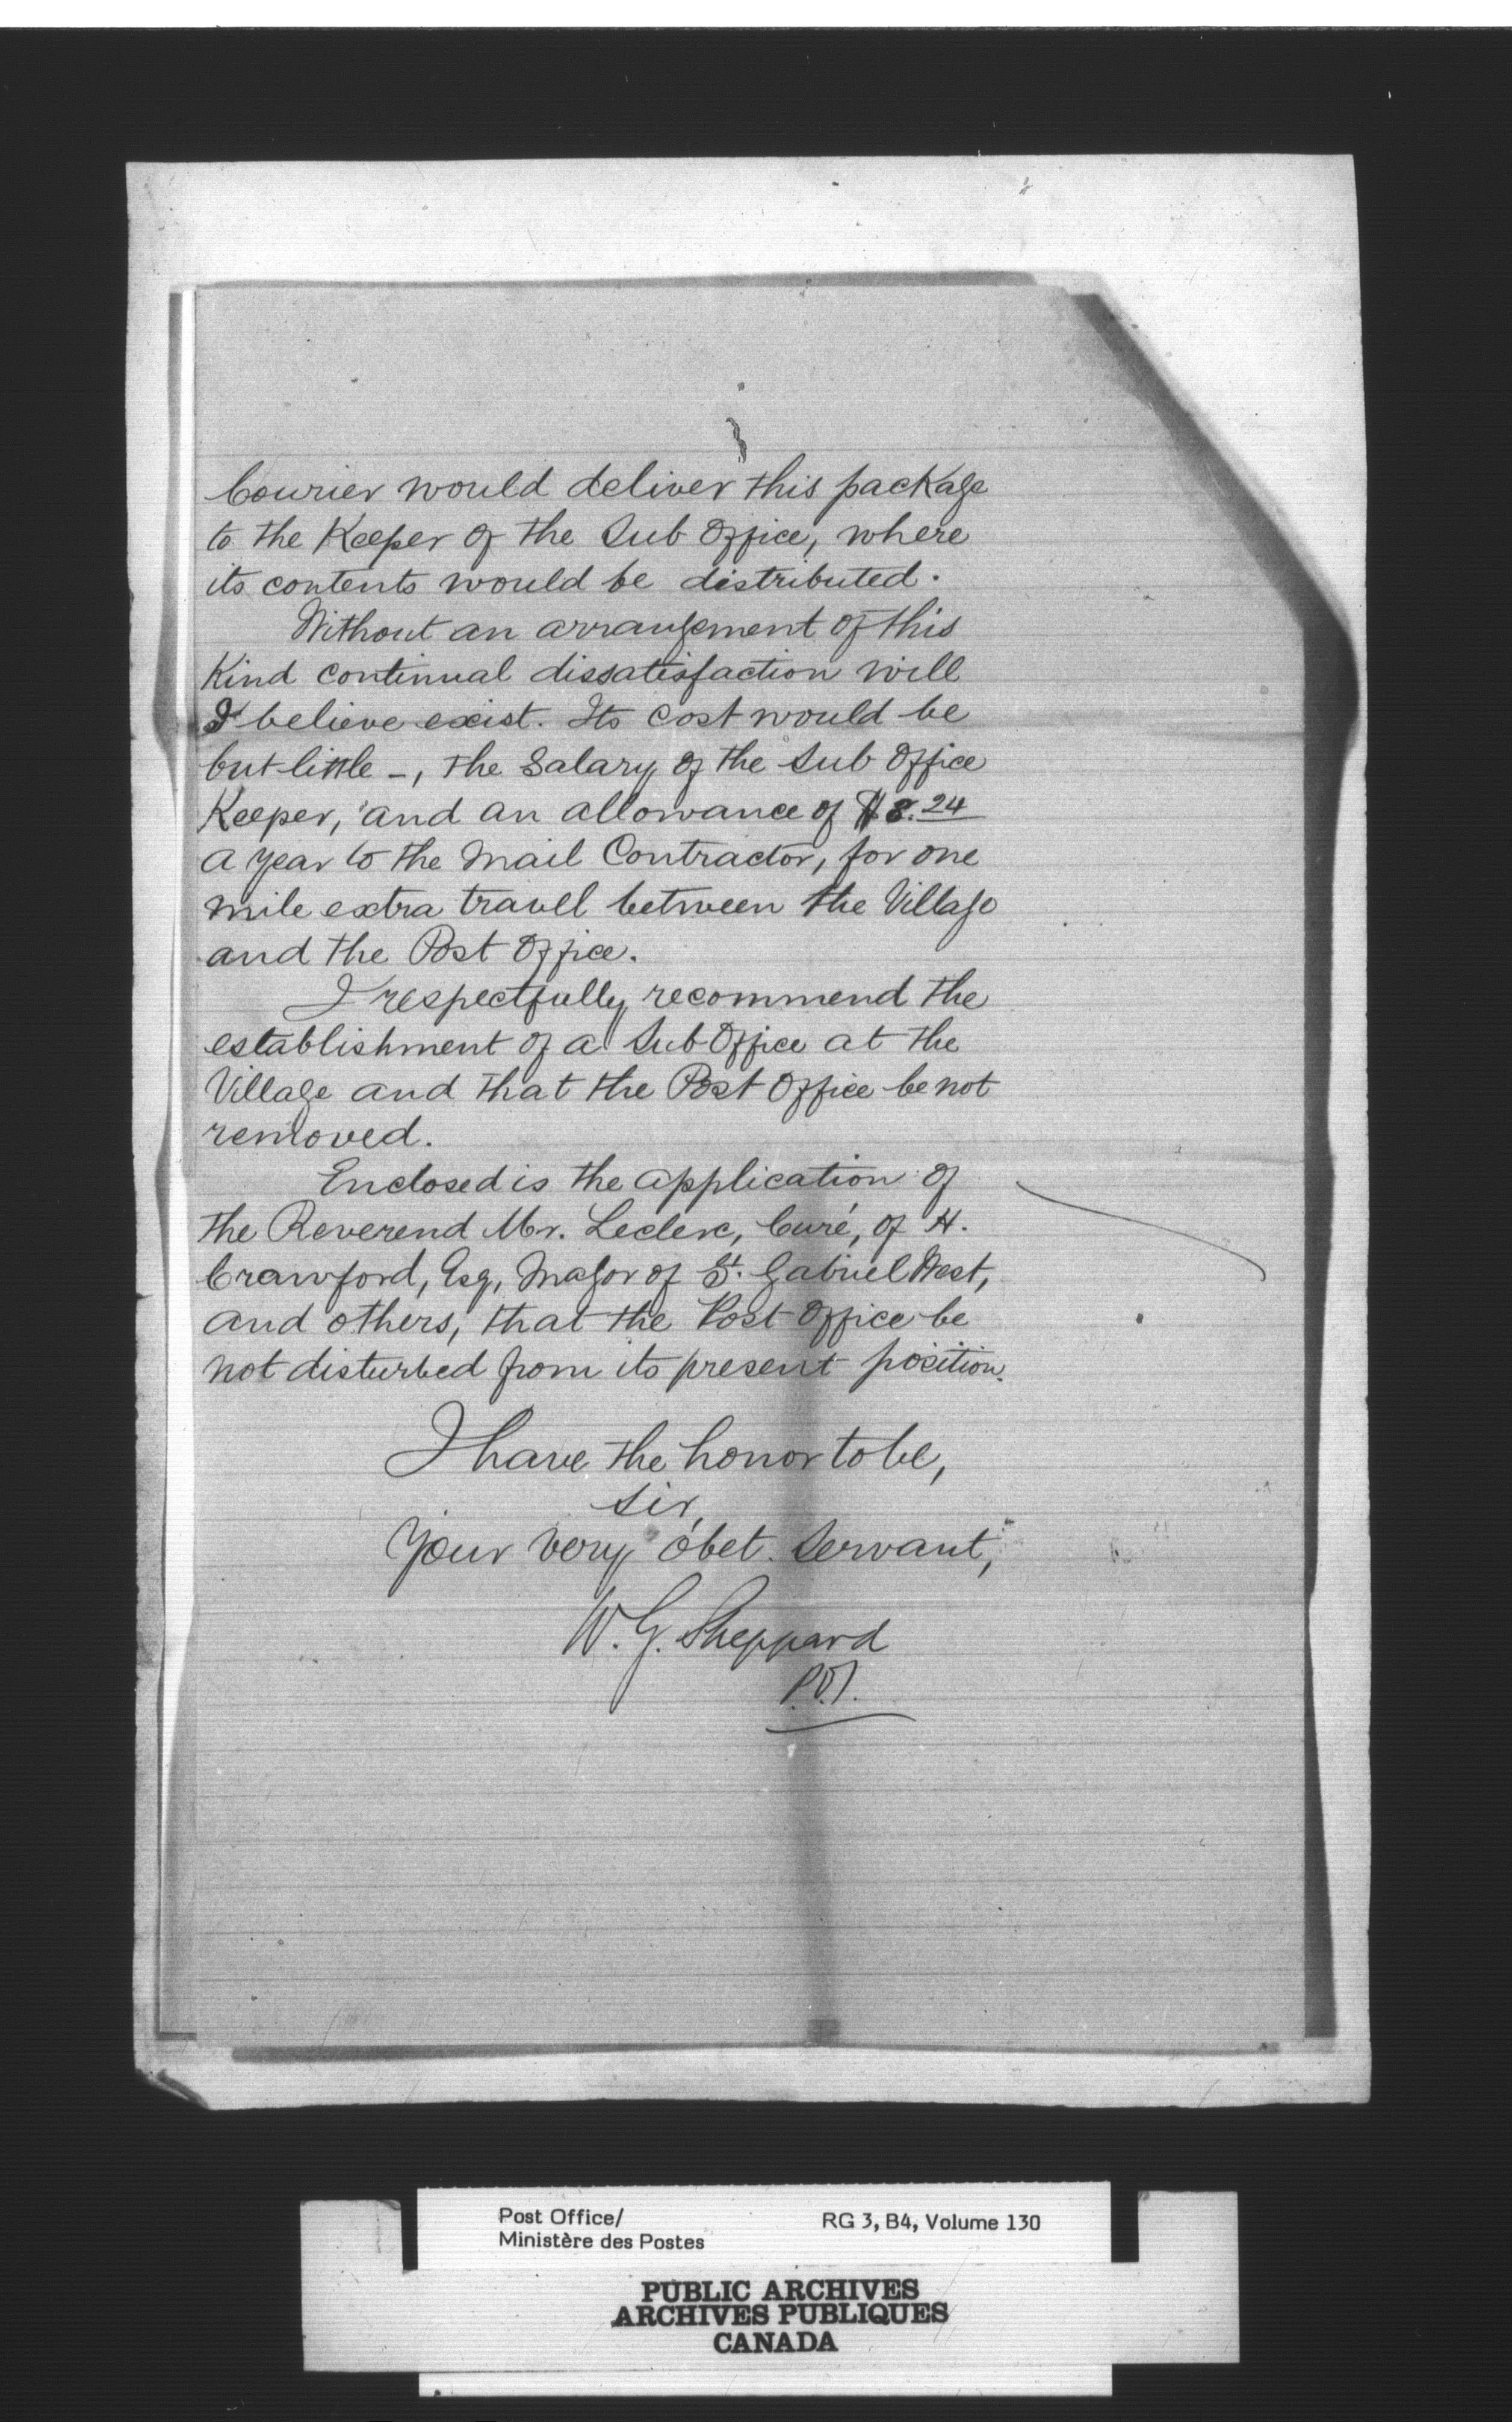 Courier would deliver this package
to the Keeper of the Sub Office, where
its contents would be distributed.
Without an arrangement of this
Kind continual dissatisfaction will
I believe exist. Its cost would be
but little -, the Salary of the Sub Office
Keeper, and an allowance of $8.24
a year to the Mail Contractor, for one
mile extra travel between the Village
and the Post Office.
I respectfully recommend the
establishment of a Sub Office at the
Village and that the Post Office be not
removed.
Enclosed is the application of
the Reverend Mr. Leclerc, Curé, of H.
Crawford, Esq, Major of St. Gabriel West,
and others, that the Post Office be
not disturbed from its present position.
I have the honor to be,
Sir,
Your very obet. Servant,
W. G. Sheppard
P.O.I.
Post Office/
Ministère des Postes
RG 3, B4, Volume 130
PUBLIC ARCHIVES
ARCHIVES PUBLIQUES
CANADA